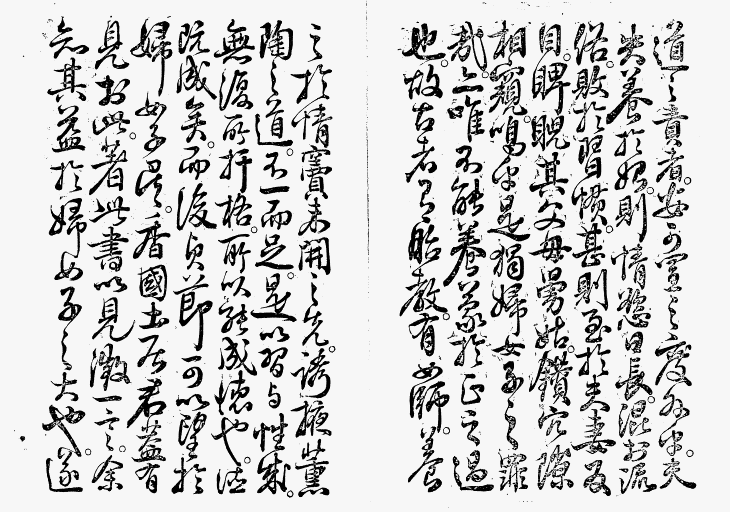 道之責者安可置之度外乎夫
失養於始則情慾日長混於流
俗敗於習慣甚則至於夫妻反
目睥睨其父母舅姑鑽穴隙
相窺嗚乎是獨婦女子之罪
哉亦唯不能養蒙於正之過
也故古者有胎教有女師養
之於情竇未開之先誘掖薰
陶之道不一而足是以習与性成
無復所扞格所以能成懐也德
既成矣而後貞節可以望於
婦女子是香國土居君蓋有
見於此著此書以見徴一言余
知其益於婦女子之大也遂